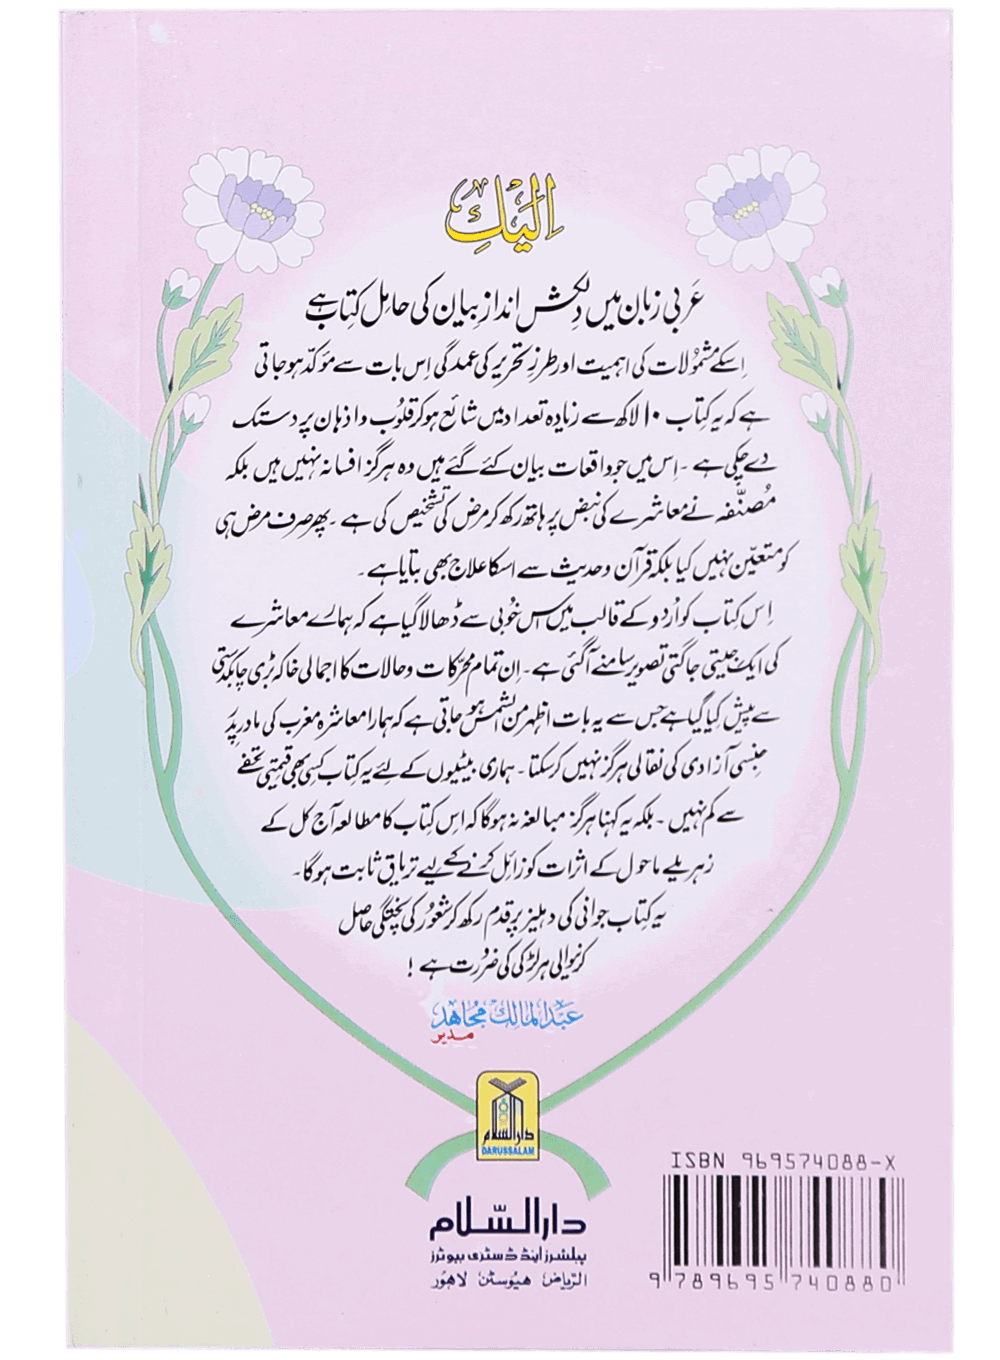 اِلَیْكِ
عَربی زبان میں دِلکش اندازِ بیان کی حامل کتاب ہے
اِسکے مشمُولات کی اہمیت اور طرزِ تحریر کی عمدگی اِس بات سے مؤکد ہو جاتی
ہے کہ یہ کتاب ۱۰ لاکھ سے زیادہ تعداد میں شائع ہو کر قلوُب و اذہان پر دستک
دے چکی ہے ۔ اِس میں جو واقعات بیان کئے گئے ہیں وہ ہرگز افسانہ نہیں ہیں بلکہ
مُصنّفہ نے معاشرے کی نبض پر ہاتھ رکھ کر مرض کی تشخیص کی ہے ۔ پھر صرف مرض ہی
کو متعیّن نہیں کیا بلکہ قرآن وحدیث سے اسکا علاج بھی بتایا ہے ۔
اِس کتاب کو اُردو کے قالب میں اس خُوبی سے ڈھالا گیا ہے کہ ہمارے معاشرے
کی ایک جیتی جاگتی تصویر سامنے آگئی ہے ۔ اِن تمام محرّکات وحالات کا اجمالی خاکہ بڑی چابکدستی
سے پیش کیا گیا ہے جس سے یہ بات اظہر من الشمس ہو جاتی ہے کہ ہمارا معاشرہ مغرب کی مادر پدَر
جنسی آزادی کی نقالی ہرگز نہیں کر سکتا ۔ ہماری بیٹیوں کے لئے یہ کتاب کسی بھی قیمتی تحفے
سے کم نہیں ۔ بلکہ یہ کہنا ہرگز مبالغہ نہ ہوگا کہ اس کتاب کا مطالعہ آج کل کے
زہریلے ماحول کے اثرات کو زائل کرنے کے لیے تریاق ثابت ہوگا ۔
یہ کتاب جوانی کی دہلیز پر قدم رکھ کر شعوُر کی پختگی حاصل
کرنیوالی ہر لڑکی کی ضرُورت ہے !
عبدالمالك مجاهد
مدیر
دارالسلام
DARUSSALAM
دارالسّلام
پبلشرز اینڈ ڈسٹری بیوٹرز
الرّیاض هیوسٹن لاهَور
ISBN 969574088-X
9 789695 740880